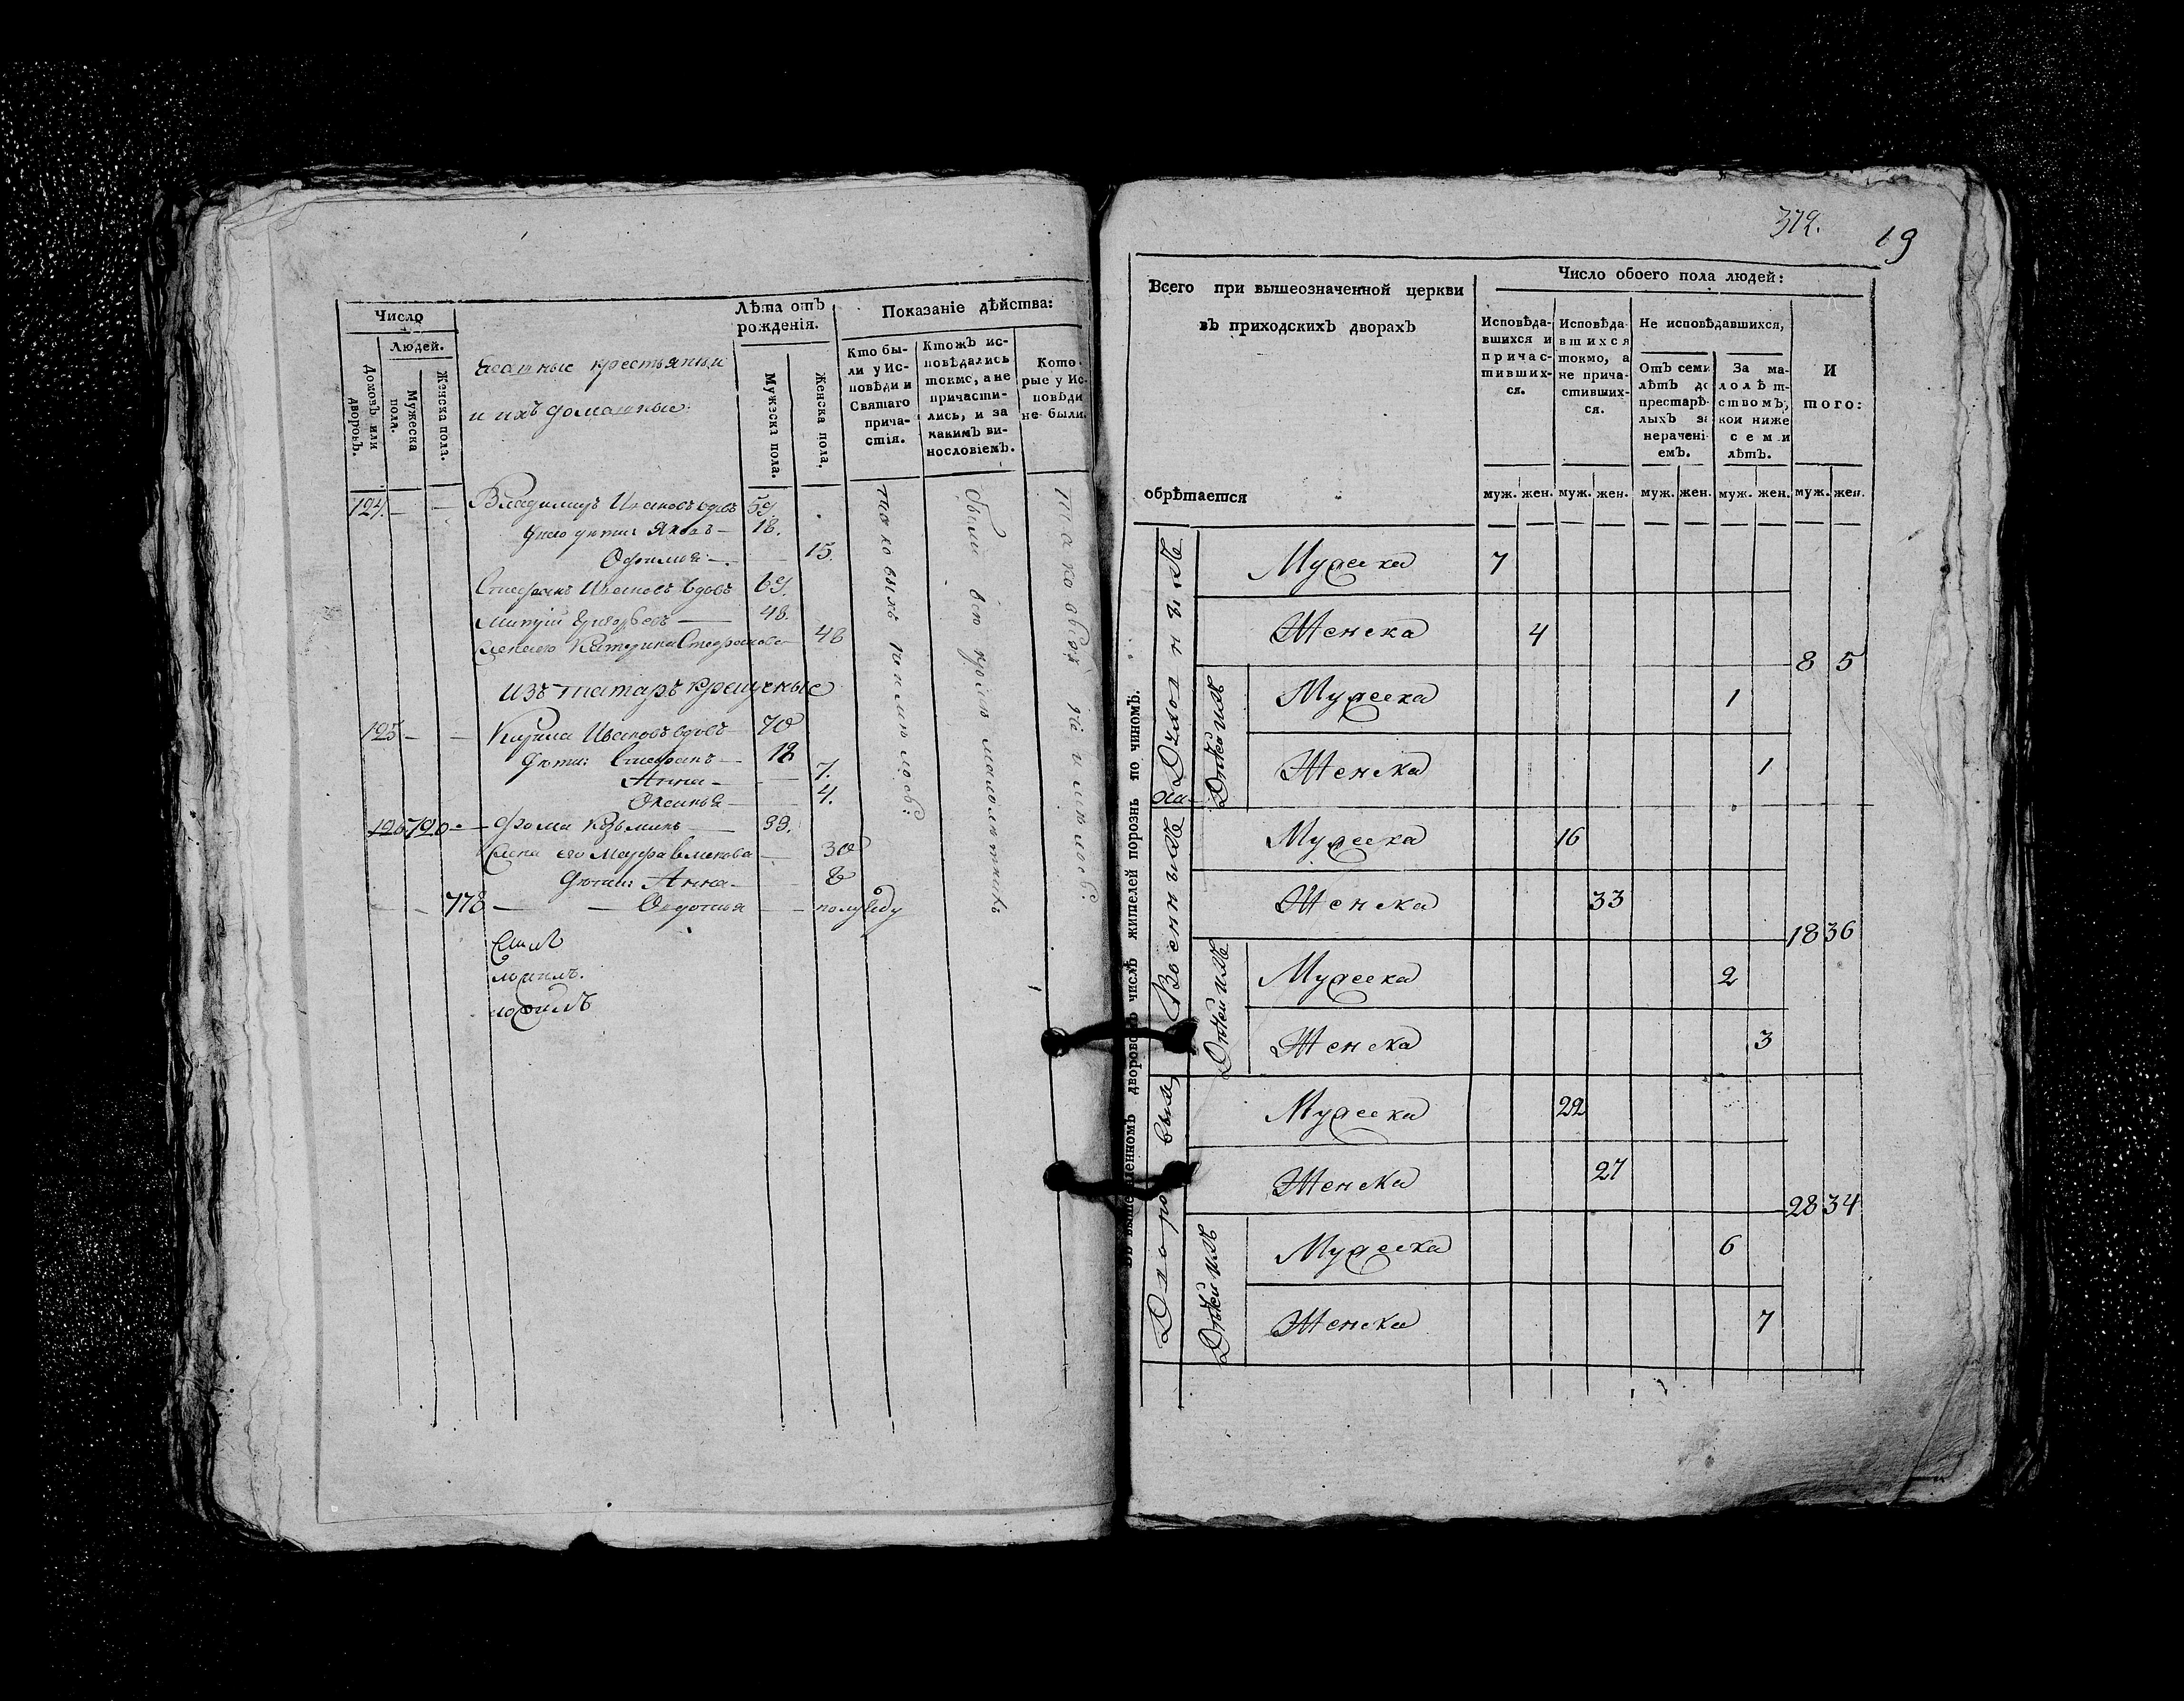 Число
Людей.
Домовъ или дворовъ.
Мужеска пола.
Женска пола.
крестьяне
и ихъ домашные:
Лѣта отъ рожденія.
Мужеска пола.
Женска пола.
Показаніе дѣйства:
Кто были у Исповѣди и Святаго причастія.
Ктожъ исповѣдались токмо, а не причастились, и за какимъ винословіемъ.
Которые у Исповѣди не были.
124. — — Владимиръ Ивановъ вдовъ 59.
У него дѣти: Яковъ — 18.
Офимья — 15.
Стефанъ Ивановъ вдовъ 69.
Григорьевъ — 48.
Жена его Катерина Стефанова 48
Изъ татаръ крещеные
125 — — Кирила Ивановъ вдовъ 70
Дѣти: Стефанъ — 12
Анна — 7.
Оксинья — 4.
126 720 — Фома Козьминъ — 33.
Жена его Марфа — 30
Дѣти: Анна — 8
778 — — Овдотья — полугоду
таковыхъ не имѣлось:
были всѣ кромѣ малолѣтныхъ
таковыхъ не имѣлось:
372.
19
Всего при вышеозначенной церкви
въ приходскихъ дворахъ
обрѣтается
Число обоего пола людей:
Исповѣдавшихся и причастившихся.
Исповѣдавшихся токмо, а не причастившихся.
Не исповѣдавшихся,
Отъ семи лѣтъ до престарѣлыхъ за нераченіемъ.
За малолѣтствомъ, кои ниже семи лѣтъ.
И того:
муж. жен. муж. жен. муж. жен. муж. жен. муж. жен.
дворовомъ числѣ жителей порознь по чиномъ.
Духовныхъ
Мужеска 7
Женска 4
8 5
Дѣтей ихъ
Мужеска 1
Женска 1
Военныхъ
Мужеска 16
Женска 33
18 36
Дѣтей ихъ
Мужеска 2
Женска 3
Дворовыхъ
Мужеска 22
Женска 27
28 34
Дѣтей ихъ
Мужеска 6
Женска 7